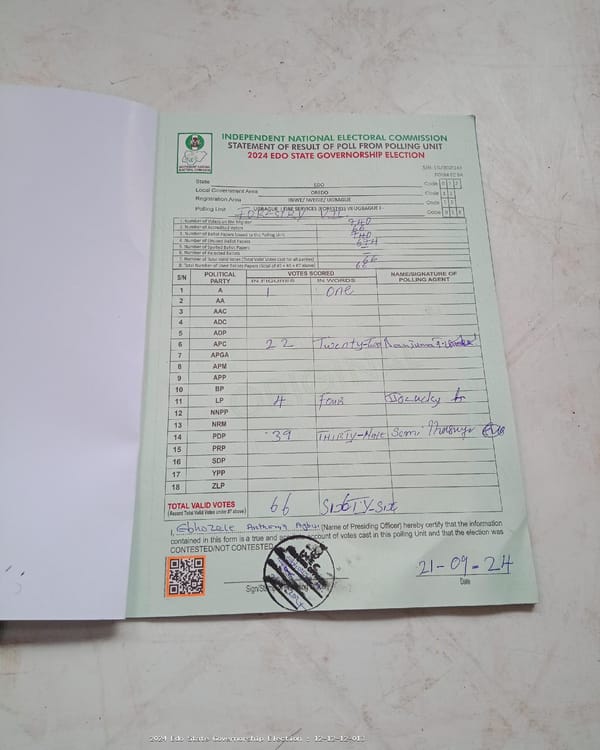 INDEPENDENT NATIONAL ELECTORAL COMMISSION
STATEMENT OF RESULT OF POLL FROM POLLING UNIT
2024 EDO STATE GOVERNORSHIP ELECTION
State EDO Code 12
Local Government Area OREDO Code 12
Registration Area Code 12
Polling Unit Code 013
FORESTRY
1. Number of Voters on the Register 740
2. Number of Accredited Voters 66
3. Number of Ballot Papers Issued to the Polling Unit 740
4. Number of Unused Ballot Papers 674
5. Number of Spoiled Ballot Papers
6. Number of Rejected Ballots
7. Number of Total Valid Votes (Total Valid Votes cast for all parties) 66
8. Total Number of Used Ballot Papers (Total of #5 + #6 + #7 above) 66
S/N POLITICAL PARTY VOTES SCORED NAME/SIGNATURE OF POLLING AGENT
IN FIGURES IN WORDS
1 A 1 one
2 AA
3 AAC
4 ADC
5 ADP
6 APC 22 Twenty-Two
7 APGA
8 APM
9 APP
10 BP
11 LP 4 Four
12 NNPP
13 NRM
14 PDP 39 THIRTY-
15 PRP
16 SDP
17 YPP
18 ZLP
TOTAL VALID VOTES 66 SIXTY-SIX
(Record Total Valid Votes under #7 above)
I, Anthony (Name of Presiding Officer) hereby certify that the information
contained in this form is a true and account of votes cast in this polling Unit and that the election was
CONTESTED/NOT CONTESTED
21-09-24
Sign/ Date
2024 Edo State Governorship Election : 12-12-12-013